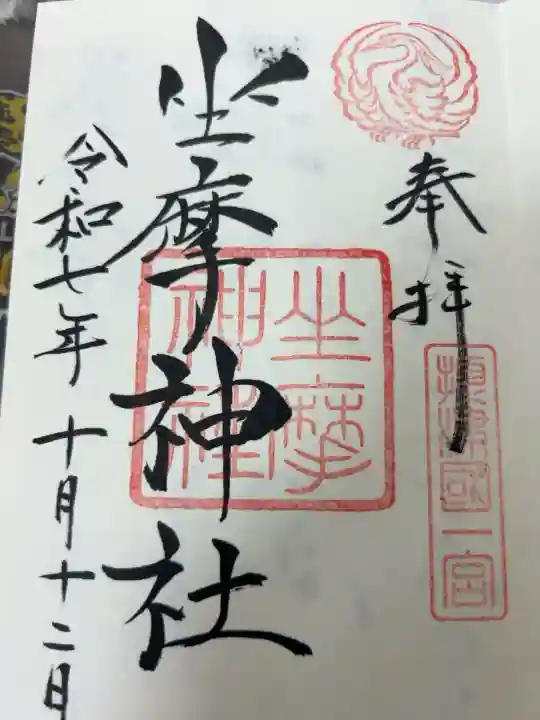 奉拝
摂津国一宮
坐摩神社
坐摩神社
令和七年十月十二日